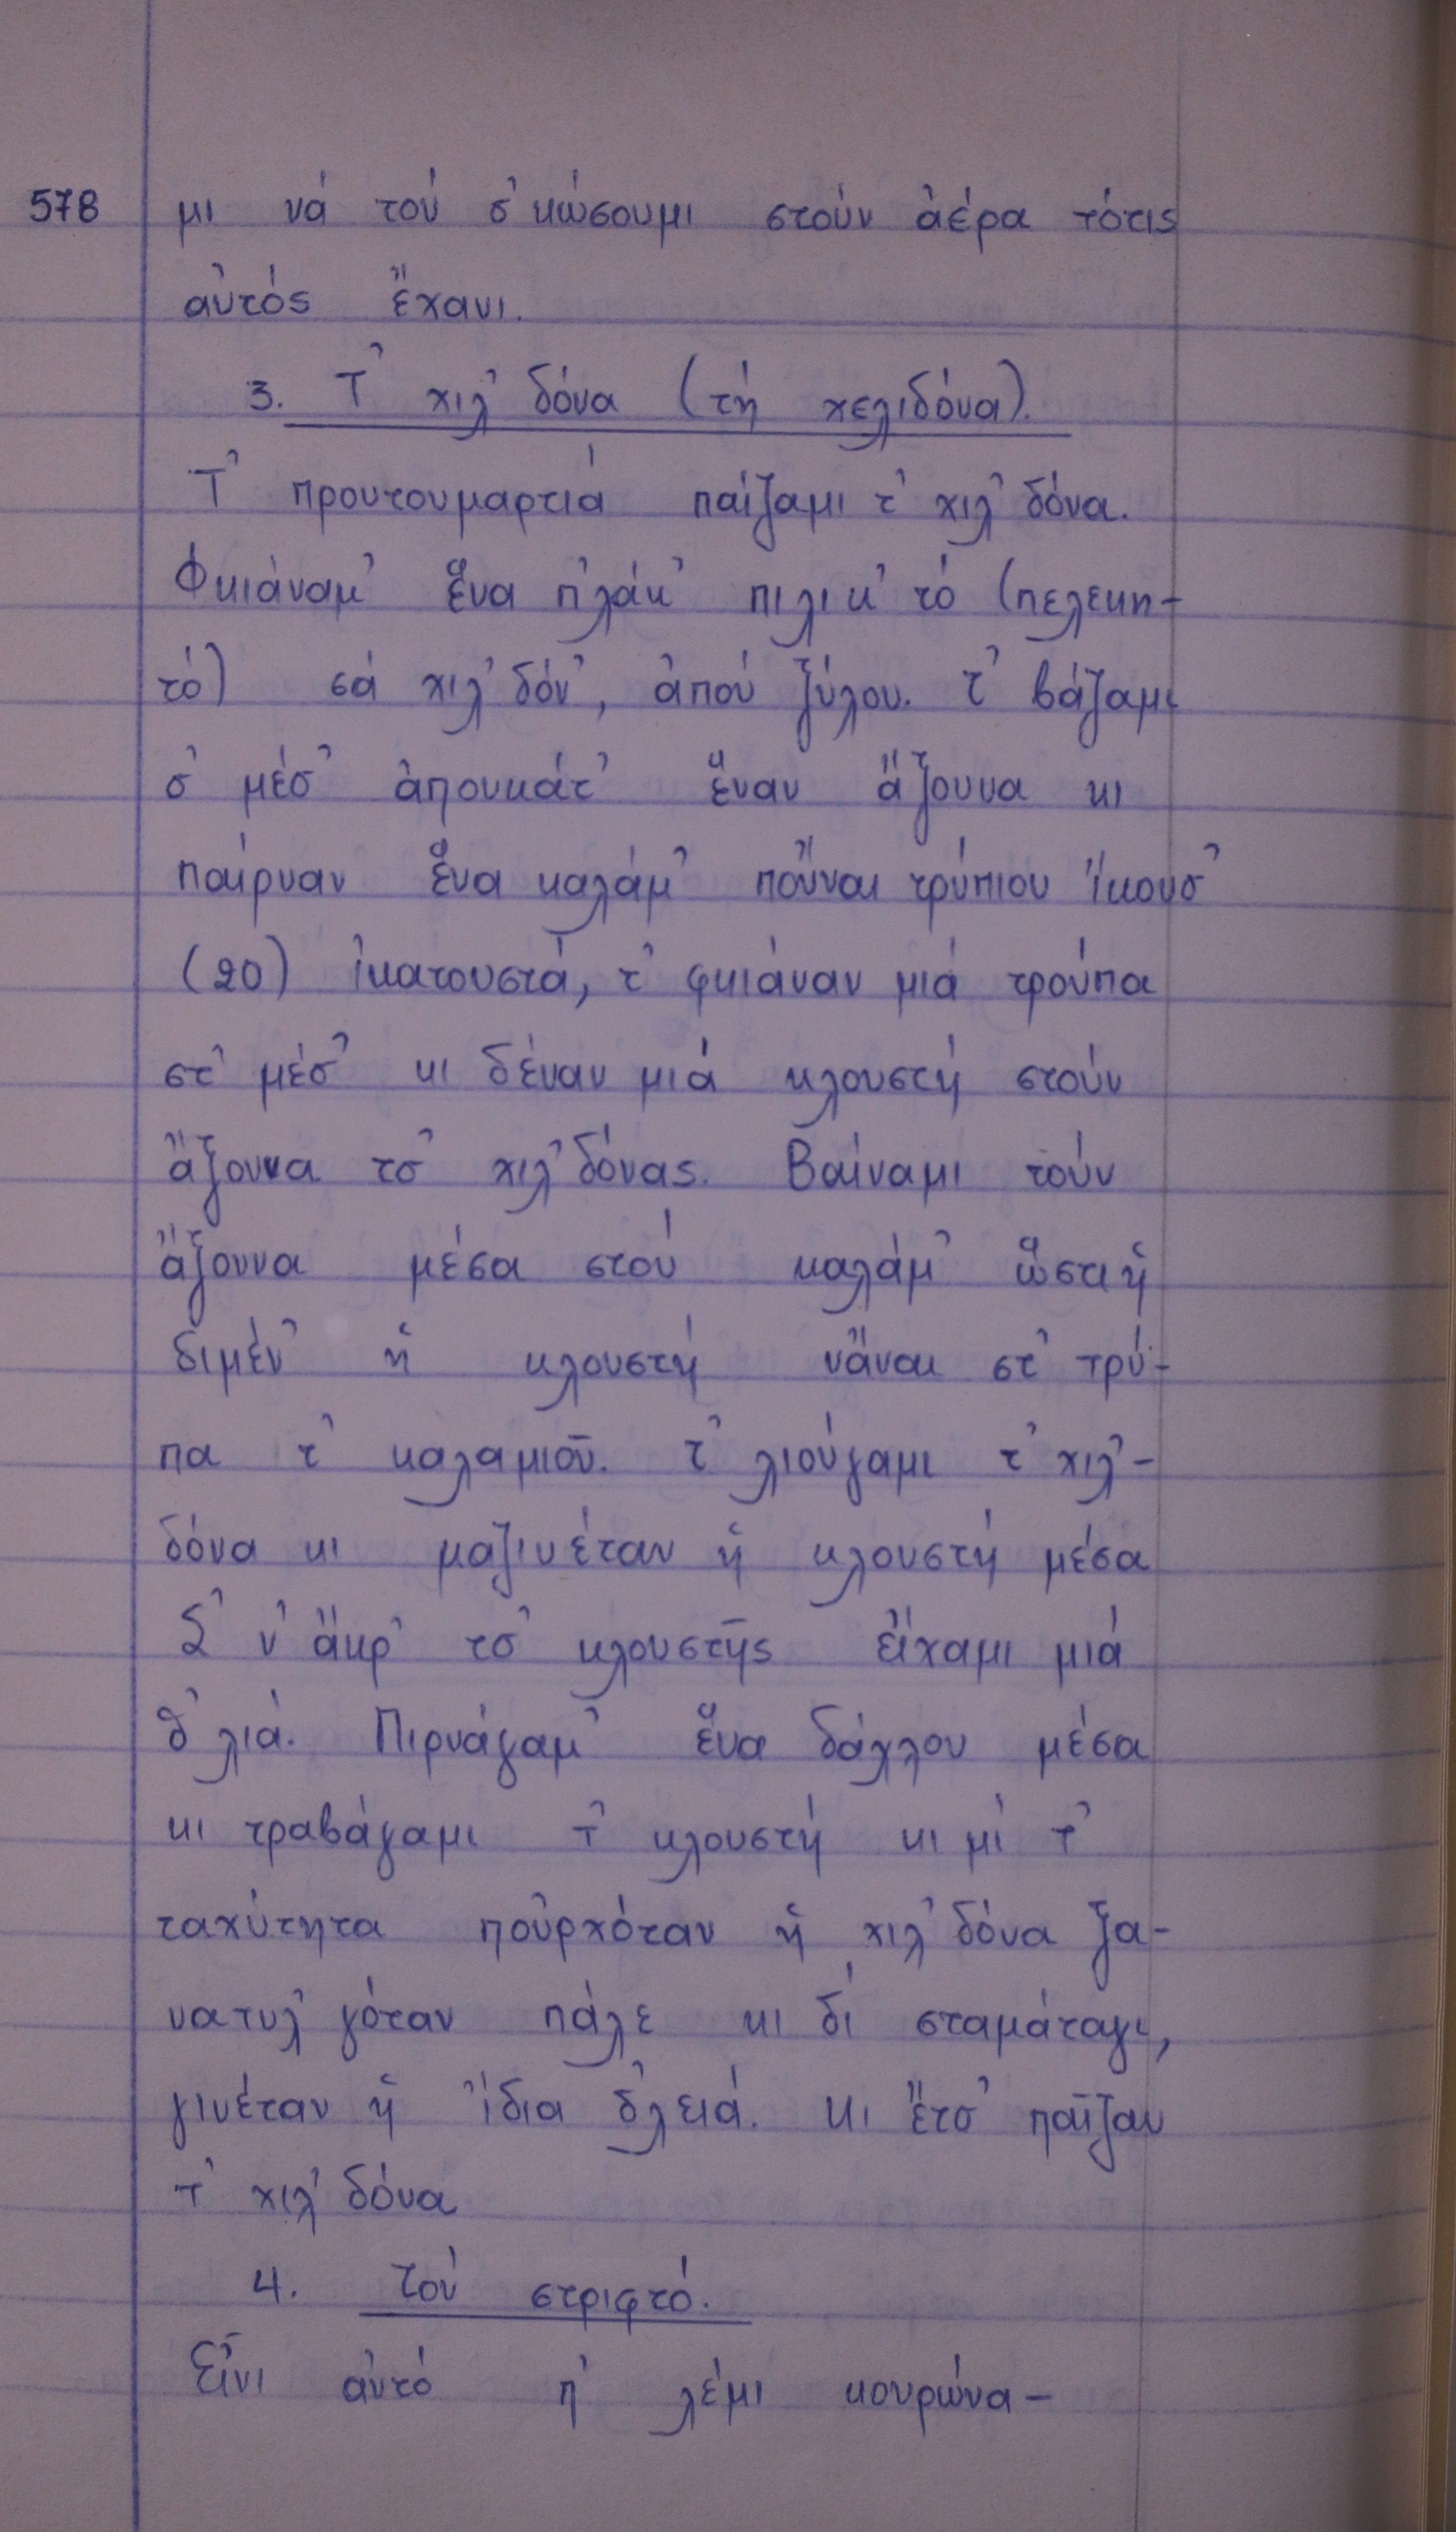 578 μι νά τού σ' κώσουμι στούν ἀέρα τότις
αὐτός ἔχανι.
3. Τ' χιλ' δόνα (τή χελιδόνα).
Τ' προυτουμαρτιά παίζαμι τ' χιλ' δόνα.
Φκιάναμ' ἕνα π'λάκ' πιλικ' τό (πελεκη-
τό) σά χιλ' δόν', ἀπού ξύλου. τ' βάζαμι
σ' μέσ' ἀπουκάτ' ἕναν ἄξουνα κι
παίρναν ἕνα καλάμ' ποὔναι τρύπιου ἴκουσ'
(20) ἰκατουστά, τ' φκιάναν μιά τρούπα
στ' μέσ' κι δέναν μιά κλουστή στούν
ἄξουνα τσ' χιλ' δόνας. Βαίναμι τούν
ἄξουνα μέσα στού καλάμ' ὥστι ἡ
διμέν' ἡ κλουστή νἄναι στ' τρύ-
πα τ' καλαμιοῦ. τ' λιούγαμι τ' χιλ'-
δόνα κι μαζινέταν ἡ κλουστή μέσα
Σ' ν' ἄκρ' τσ' κλουστῆς εἴχαμι μιά
θ'λιά. Πιρνάγαμ' ἕνα δάχλου μέσα
κι τραβάγαμι τ' κλουστή κι μί τ'
ταχύτητα ποὐρχόταν ἡ χιλ' δόνα ξα-
νατυλ' γόταν πάλε κι δί σταμάταγι,
γινέταν ἡ ἴδια δ'λειά. κι ἔτσ' παῖζαν
τ' χιλ' δόνα
4. Τού στριφτό.
Εἶνι αὐτό π' λέμι κουρώνα-